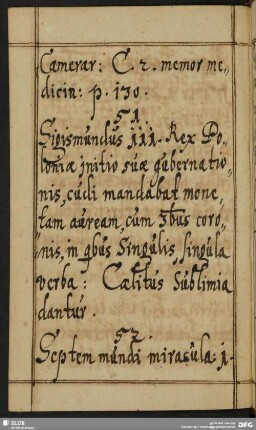 Camerar: C. 2. memor me„
dicin: p. 130.
51
Sigismundus iii. Rex Po„
loniæ initio suæ gubernatio„
nis, cudi mandabat mone„
tam auream, cum 3bus coro„
nis, in qbus Singulis, singula
verba: Cælitus Sublimia
dantur.
52
Septem mundi miracula: 1.
SLUB